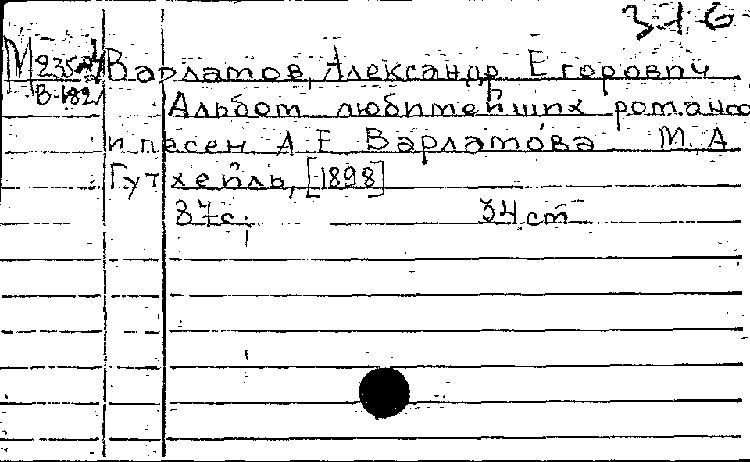 376
Варламов, Александр Егорович
В-182
Альбом любимейших романсо
и песен А Е Варламова М, А
Гутхейль, [1898]
87с. 34 см